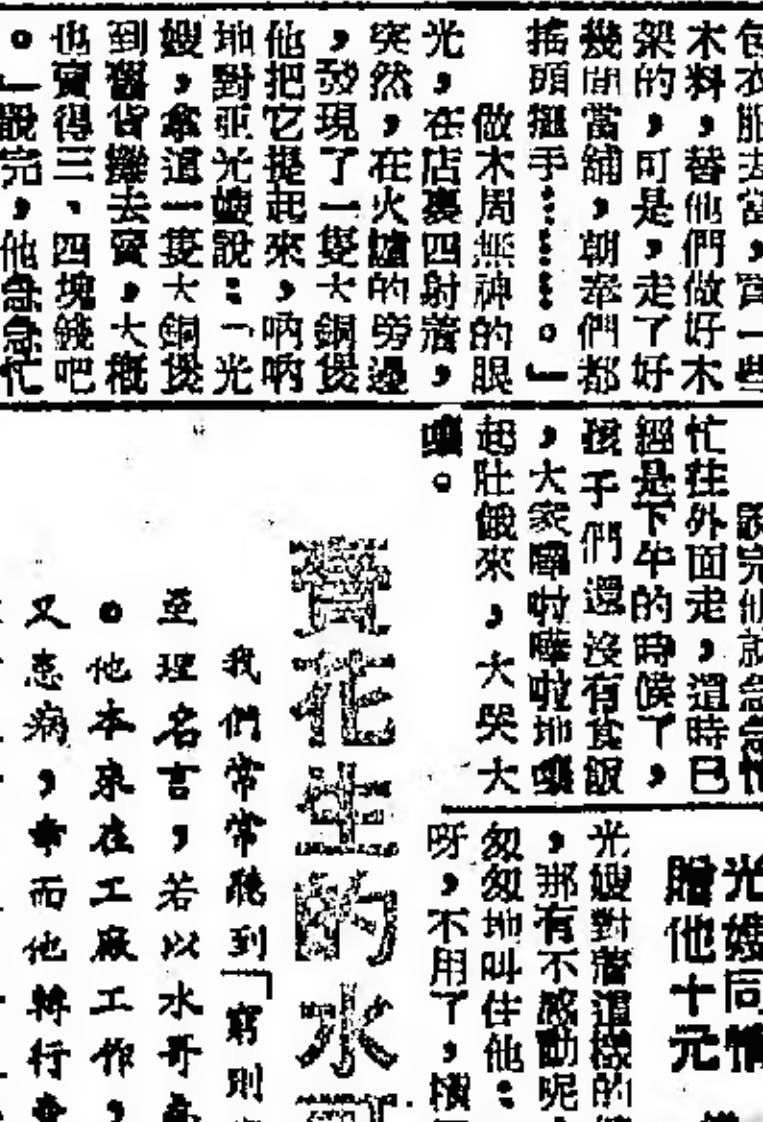 包衣服去當，買一些
木料，替他們做好木
架的，可是，走了好
幾間當舖，朝奉們都
搖頭擺手⋯⋯。」
做木周無神的眼
光，在店裏四射着，
突然，在火爐的旁邊
，發現了一隻大銅煲
他把它提起來，吶吶
地對亞光嫂說：「光
嫂，拿這一隻大銅煲
到舊貨攤去賣，大槪
也賣得三、四塊錢吧
。」說完，他急急忙
說完他就急急忙
忙往外面走，這時已
經是下午的時候了，
孩子們還沒有食飯
，大家嘩啦嘩啦地嚷
起肚餓來，大哭大
嚷。
光嫂同情
贈他十元
光嫂對着這樣的
，那有不感動呢
匆匆地叫住他：
呀，不用了，
賣花生的水
我們常常聽到「窮則
至理名言，若以水哥
。他本來在工廠工作，
又患病，幸而他轉行